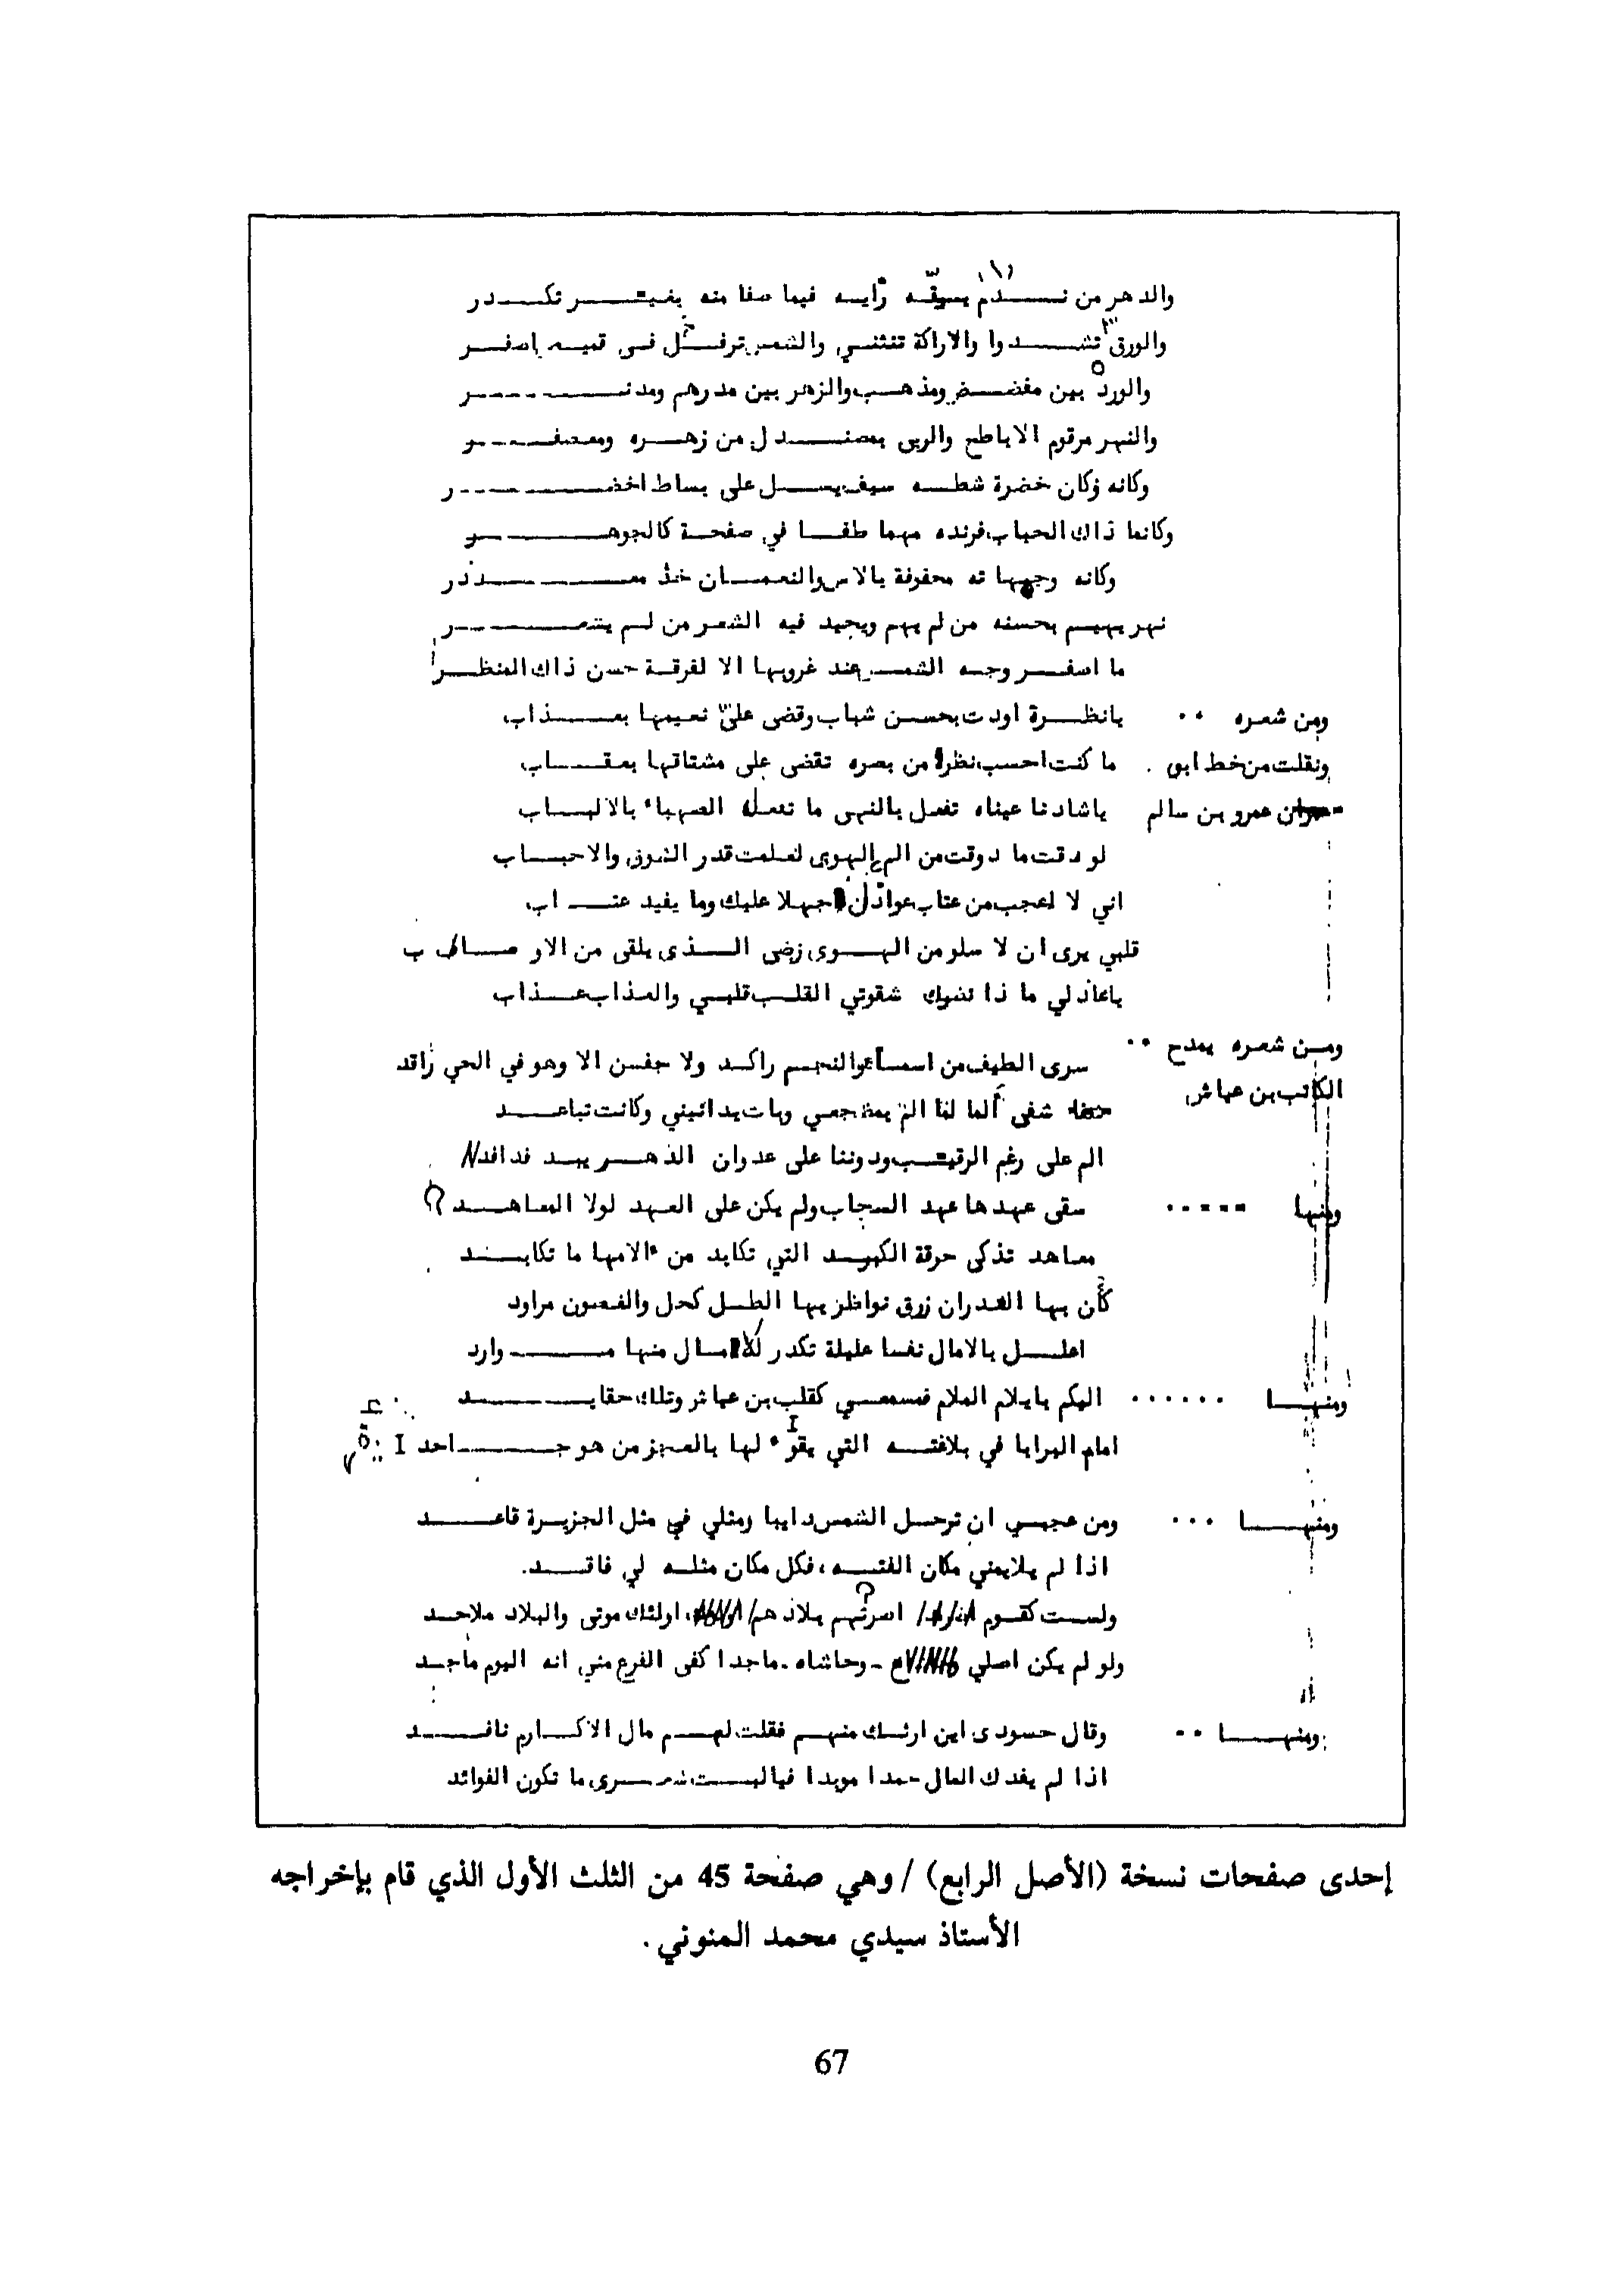 والدهر من ندم يسفّه رأيسه فيما صفا منه بغيتر تكدر
والورق تشدوا والاراكة تنثني والشمس ترفل في قميص اصفر
والورد بين مفضض ومذهب والزهر بين مدرهم ومدنر
والنهر مرقوم الاباطح والربى بمصندل من زهره ومعصفر
وكانه وكان خضرة شطه سيف يسل على بساط اخضر
وكانما ذاك الحباب فرنده مهما طفا في صفحة كالجوهر
وكانه وجهاته محفوفة بالاس والنعمان خد معذر
نهر يهيم بحسنه من لم يهم ويجيد فيه الشعر من لم يشعر
ما اصفر وجه الشمس عند غروبها الا لفرقة حسن ذاك المنظر
ومن شعره .. يانظرة اودت بحسن شباب وقضى عليّ نعيمها بعذاب
ونقلت من خط ابى . ما كنت احسب نظرا من بصره تقضى على مشتاقها بعقاب
عمرو بن سالم ياشادنا عيناه تفعل بالنهى ما تفعله الصهباء بالالباب
لو دقت ما دوقت من الم الهوى لعلمت قدر الشوق والاحباب
اني لا اعجب من عتاب عواذل جهلا عليك وما يفيد عتاب
قلبي يرى ان لا سلو من الهوى رضى الذى يلقى من الاوصاب
ياعاذلي ما ذا تضرك شقوتي القلب قلبي والعذاب عذاب
ومن شعره يمدح .. سرى الطيف من اسماء والنجم راكد ولا جفن الا وهو في الحي راقد
الكاتب بن عياش شفى ألما لما الم بمضجعي وبات يدانيني وكانت تباعد
الم على رغم الرقيب ودوننا على عدوان الدهر بيد فدافد
ومنها ..... سقى عهدها عهد السحاب ولم يكن على العهد لولا المعاهد ؟
معاهد تذكى حرقة الكبد التي تكابد من الامها ما تكابد
كأن بها الغدران زرق نواظر بها الطل كحل والغصون مراود
اعلل بالامال نفسا عليلة تكدر للامال منها موارد
ومنها ...... اليكم يايلام الملام فمسمعي كقلب بن عياش وتلك حقايد
امام البرايا في بلاغته التي يقر لها بالعجز من هو جاحد
ومنها ... ومن عجبي ان ترحل الشمس دايبا ومثلي في مثل الجزيرة قاعد
اذا لم يلايمني مكان الفته ، فكل مكان مثله لي فاقد.
ولست كقوم اسرتهم بلادهم اولئك موتى والبلاد ملاحد
ولو لم يكن اصلي - وحاشاه - ماجدا كفى الفرع مني انه اليوم ماجد
ومنها .. وقال حسودى اين ارثك منهم فقلت لهم مال الاكارم نافد
اذا لم يفدك المال حمدا موبدا فياليت شعرى ما تكون الفوائد
إحدى صفحات نسخة (الأصل الرابع) / وهي صفحة 45 من الثلث الأول الذي قام بإخراجه
الأستاذ سيدي محمد المنوني .
67